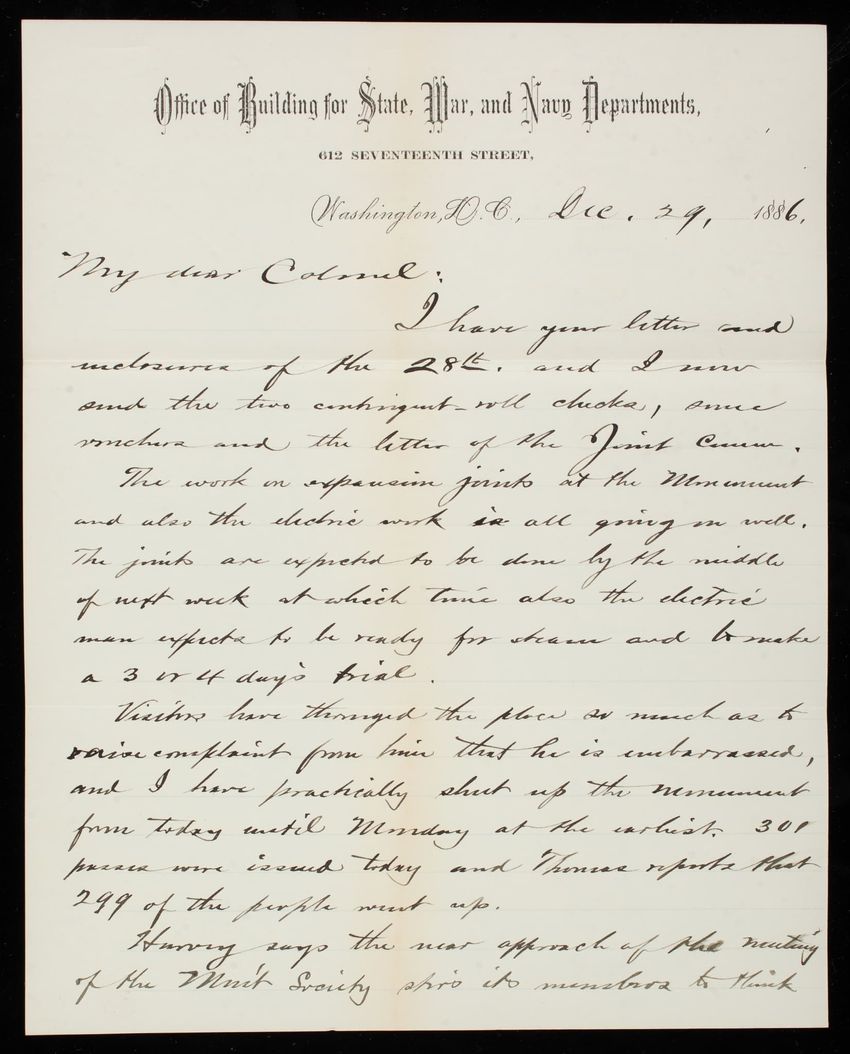 Office of Building for State, War, and Navy Departments,
612 SEVENTEENTH STREET,
Washington, D.C., Dec. 29, 1886.
My dear Colonel:
I have your letter and
inclosures of the 28th. and I now
send the two contingent-roll checks, some
vouchers and the letter of the Joint Comm.
The work on expansion joints at the Monument
and also the electric work is all going on well.
The joints are expected to be done by the middle
of next week at which time also the electric
man expects to be ready for steam and to make
a 3 or 4 day's trial.
Visitors have thronged the place so much as to
raise complaint from him that he is embarrassed,
and I have practically shut up the monument
from today until Monday at the earliest. 301
passes were issued today and Thomas reports that
299 of the people went up.
Harvey says the near approach of the meeting
of the Mon't Society stirs its members to think